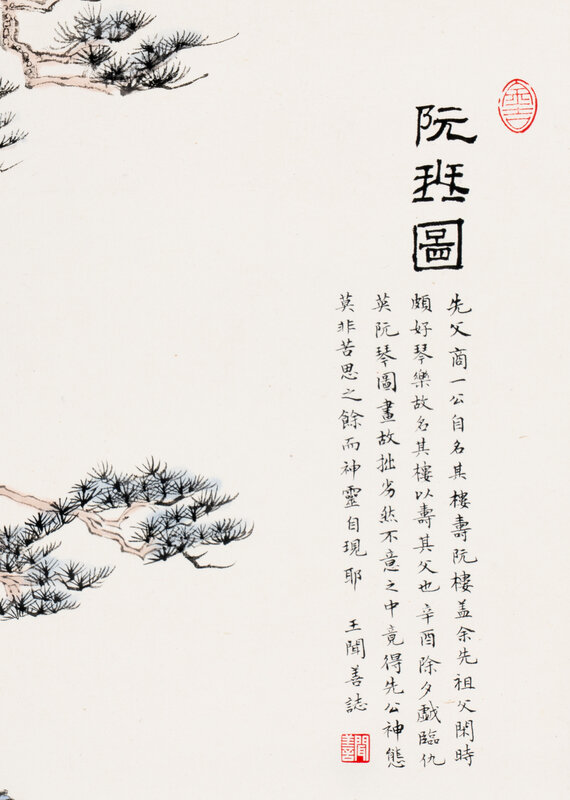 阮珡圖
先父商一公自名其樓壽阮樓盖余先祖父閑時
頗好琴樂故名其樓以壽其父也辛酉除夕戲臨仇
英阮琴圖畫故拙劣然不意之中竟得先公神態
莫非苦思之餘而神靈自現耶 王聞善誌
聞善